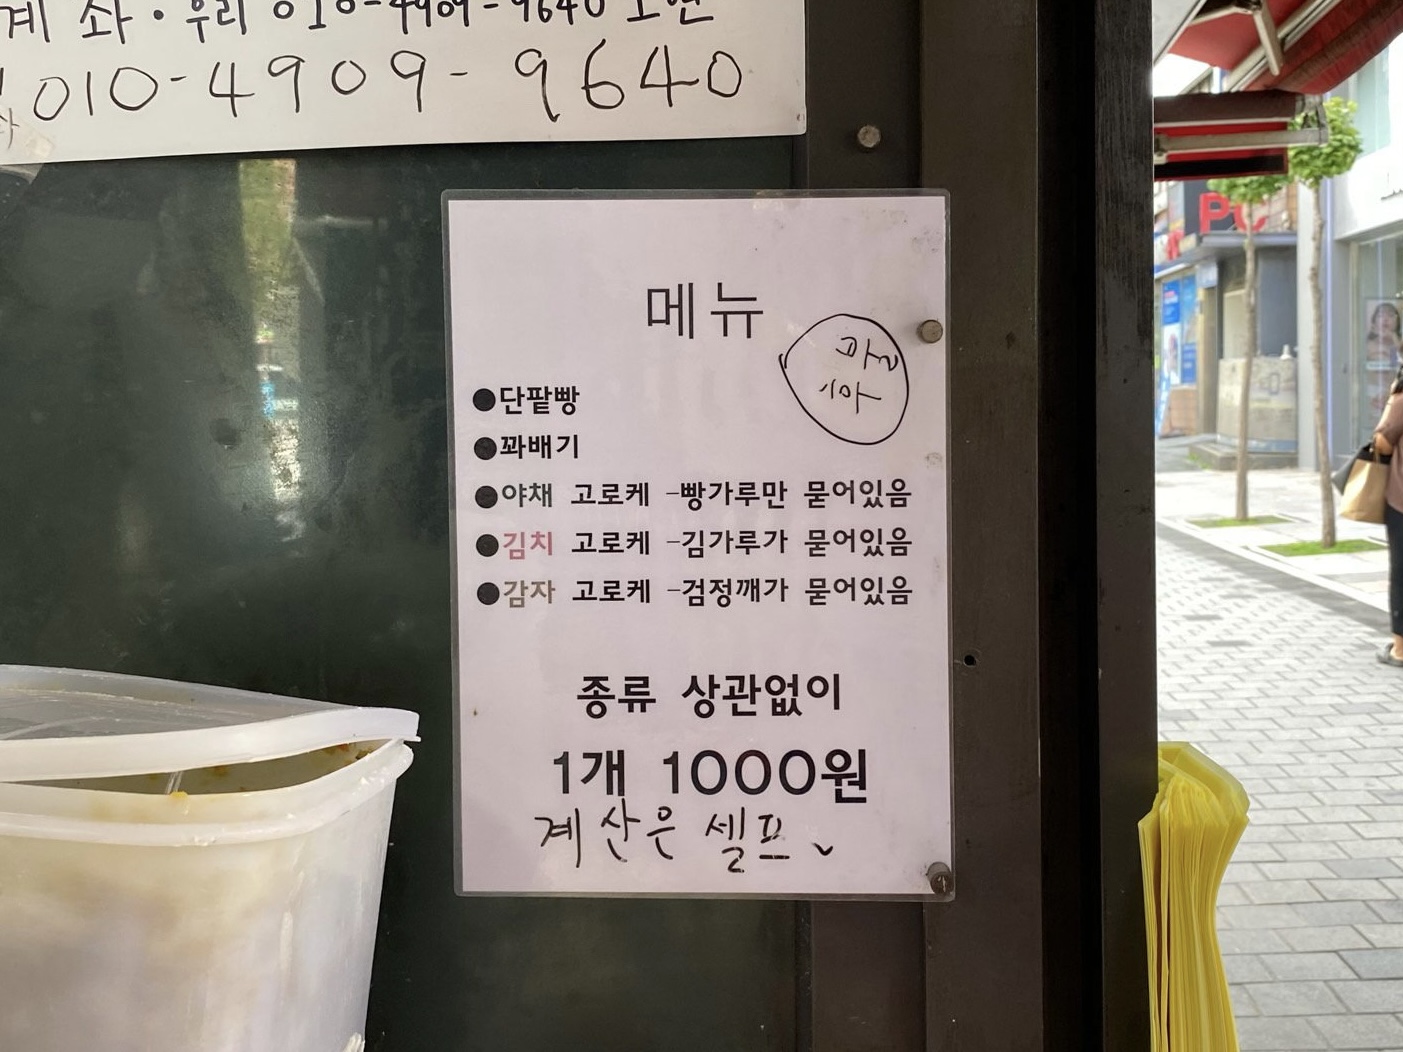 계좌·우리 010-4909-9640
010-4909-9640
메뉴
●단팥빵
●꽈배기
●야채 고로케 -빵가루만 묻어있음
●김치 고로케 -김가루가 묻어있음
●감자 고로케 -검정깨가 묻어있음
종류 상관없이
1개 1000원
계산은 셀프
PC